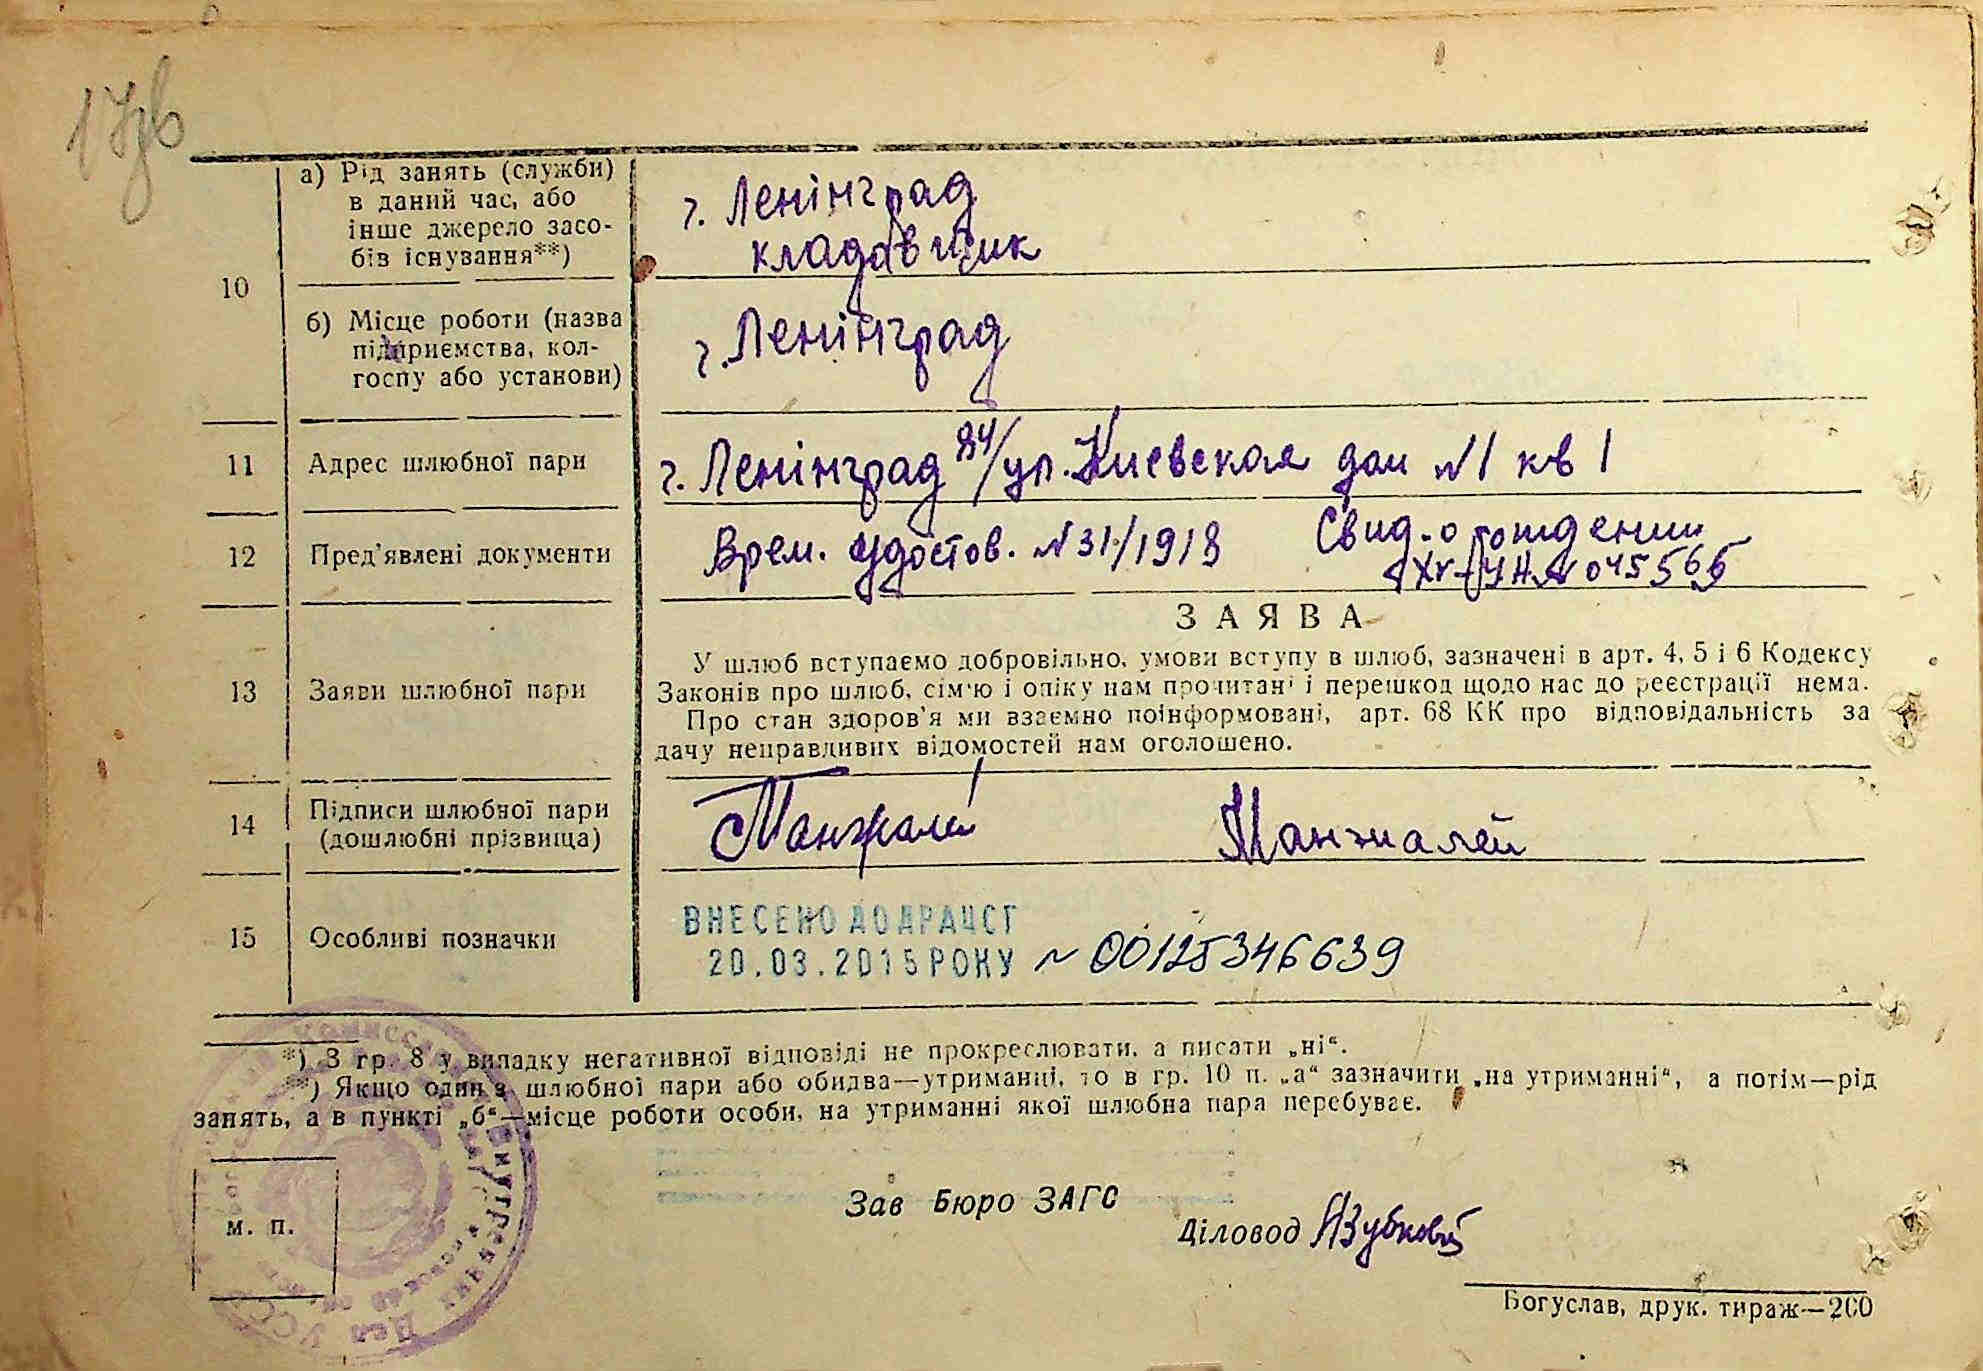 10
а) Рід занять (служби)
в даний час, або
інше джерело засо-
бів існування**)
г. Ленінград
кладовщик
б) Місце роботи (назва
підприємства, кол-
госпу або установи)
г. Ленінград
11 Адрес шлюбної пари г. Ленінград 84/ ул. Киевская дом №1 кв 1
12 Пред'явлені документи Врем. удостов. №31/1918 Свид. о рождении
№ 045566
З А Я В А
13 Заяви шлюбної пари
У шлюб вступаємо добровільно, умови вступу в шлюб, зазначені в арт. 4, 5 і 6 Кодексу
Законів про шлюб, сім'ю і опіку нам прочитані і перешкод щодо нас до реєстрації нема.
Про стан здоров'я ми взаємно поінформовані, арт. 68 КК про відповідальність за
дачу неправдивих відомостей нам оголошено.
14 Підписи шлюбної пари
(дошлюбні прізвища)
Манжалей Манжалей
15 Особливі позначки
ВНЕСЕНО ДО ДРАЦСГ
20.03.2015 РОКУ № 00125346639
*) З гр. 8 у випадку негативної відповіді не прокреслювати, а писати „ні“.
**) Якщо один з шлюбної пари або обидва—утриманці, то в гр. 10 п. „а“ зазначити „на утриманні“, а потім—рід
занять, а в пункті „б“—місце роботи особи, на утриманні якої шлюбна пара перебуває.
м. п.
Зав Бюро ЗАГС
Діловод
Богуслав, друк. тираж—200